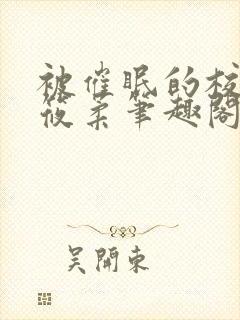 被催眠的校
筱柔笔趣阁
吴開東